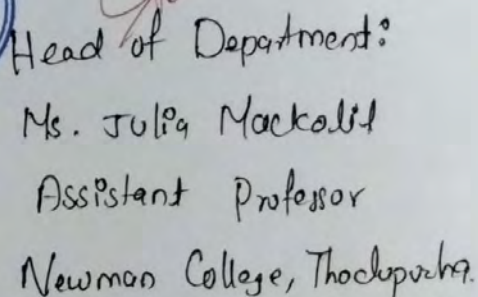 Head of Department:
Ms. Julia Mackolil
Assistant Professor
Newman College, Thodupuzha.